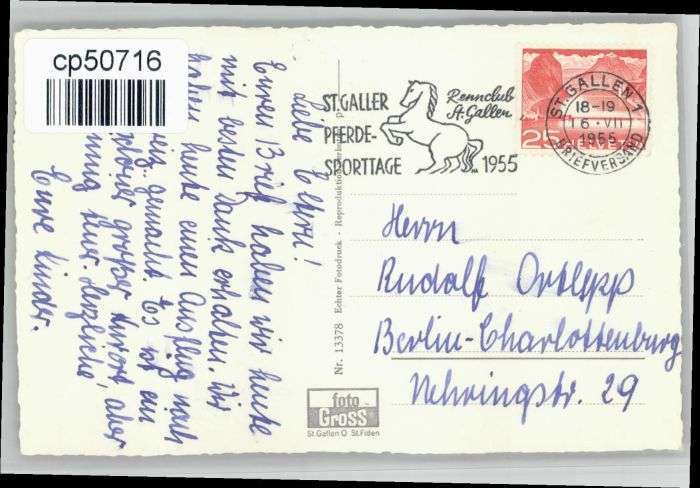 cp50716
Liebe Eltern!
Euren Brief haben wir heute
mit besten Dank erhalten. Wir
haben heute einen Ausflug nach
gemacht. Es ist ein
großer Kurort, aber
nur. Herzliche
Eure Kinder.
ST.GALLER
PFERDE-
SPORTTAGE
Rennclub
St.Gallen
1955
ST. GALLEN 1
18-19
16·VII
1955
BRIEFVERSAND
25
Herrn
Rudolf Ortlepp
Berlin-Charlottenburg
Nehringstr. 29
Nr. 13378 Echter Fotodruck - Reproduktion
foto
GROSS
St.Gallen O St.Fiden